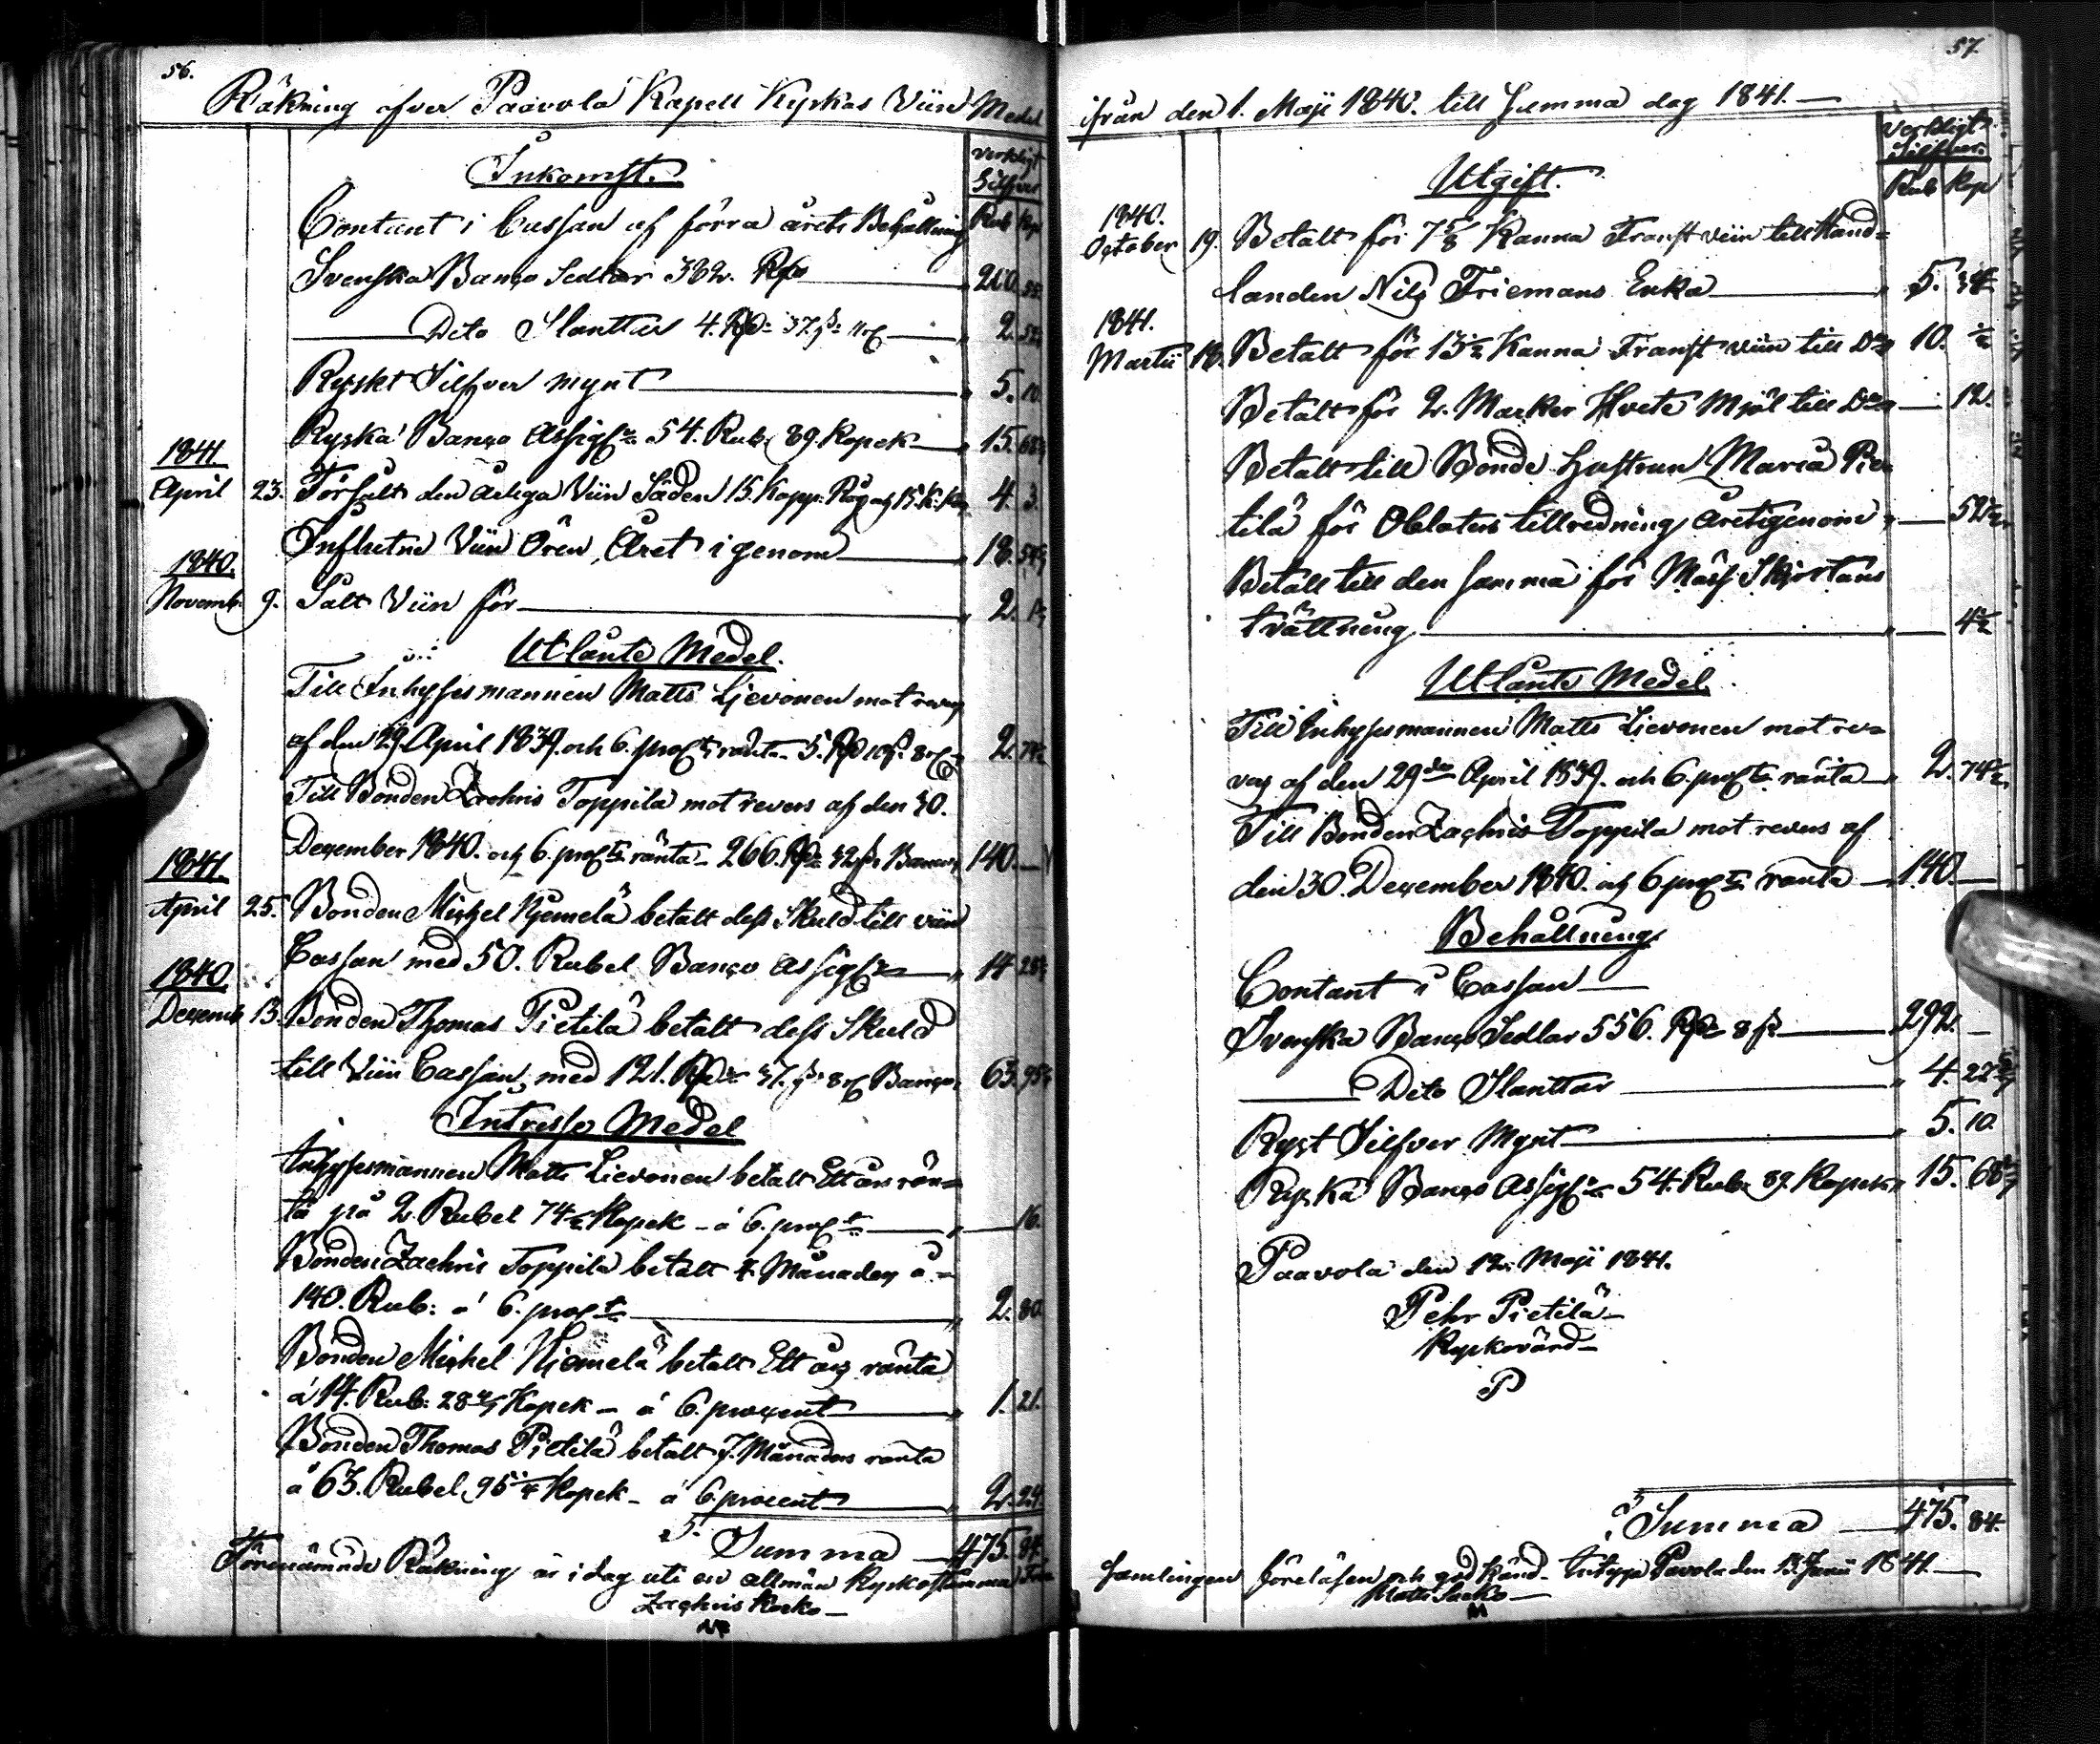 56.
Räkning öfver Paavola Kapell Kyrkas Viin Medel
Inkomst.
verkligt
Silfver
Rub Kop
Contant i Cassan af förra årets Behållning
Svenska Banco Sedlar 382. Rd 200.
Dito Slanttar 4. Rd: 37. s: 11 r 2.
Ryskt Silfver mynt 5. 10.
Ryska Banco Assig 54. Rub. 89. Kopek 15. 68
1841
April 23. Försålt den årliga Viin Säden 15. Kapp. Råg och 15. K. 4. 3.
Influtne Viin Ören, Året igenom 18.
1840.
Novemb. 9. Sålt Viin för 2.
Utlånte Medel.
Till Inhyses mannen Matts Lievonen mot revers
af den 29. April 1839. och 6. proct ränta 5. Rd 10 s. 8 r 2. 74½
Till Bonden Zachris Toppila mot revers af den 30.
December 1840. och 6. proct ränta 266. Rd 32 s Banco 140.
1841
April 25. Bonden Michel Niemelä betalt dess Skuld till viin
Cassan med 50. Rubel Banco Assig 14 28
1840
Decemb. 13. Bonden Thomas Pietilä betalt dess Skuld
till Viin Cassan med 121. Rd 37. s 8 r Banco 63. 95
Intresse Medel
Inhysesmannen Matts Lievonen betalt Ett års rän-
ta på 2. Rubel 74½ Kopek - á 6. proct 16.
Bonden Zachris Toppila betalt 4. Månader á
140. Rub: á 6. proct 2. 80.
Bonden Michel Niemelä betalt Ett års ränta
á 14. Rub: 28 Kopek - á 6. procent 1. 21.
Bonden Thomas Pietilä betalt 7. Månaders ränta
á 63. Rubel 95 Kopek - á 6. procent 2. 24.
Summa 475. 84.
Förenämnde Räkning är i dag uti en allmän Kyrkostämma
Zachris Karko
57.
ifrån den 1. Maji 1840. till samma dag 1841.
Utgift.
verkligt
Silfver.
Rub Kop
1840.
October 19. Betalt för 7 5/8 Kanna Franst viin till Hand-
landen Nils Friemans Enka 5. 34
1841.
Martii 18. Betalt för 13½ Kanna Franst viin till Do 10. ½
Betalt för 2. Marker Hvete Mjöl till Do 12.
Betalt till Bonde Hustrun Maria Pie-
tilä för Oblaters tillredning åretigenom 52½
Betalt till den samma för Mäss Skjortans
tvättning 4½
Utlånte Medel.
Till Inhysesmannen Matts Lievonen mot re-
vers af den 29de April 1839. och 6. proct ränta 2. 74½
Till Bonden Zachris Toppila mot revers af
den 30. December 1840. och 6 proct ränta 140.
Behållning
Contant i Cassan
Svenska Banco Sedlar 556. Rd 8 s 292.
Dito Slanttar 4. 22
Ryst Silfver Mynt 5. 10.
Ryska Banco Assig 54. Rub. 89. Kopek 15. 68
Paavola den 12. Maji 1841.
Pehr Pietilä
Kyrkovärd
P
Summa 475. 84.
samlingen föreläsen och god känd. Intygar Pavola den 13. Junii 1841.
Matts Sarko